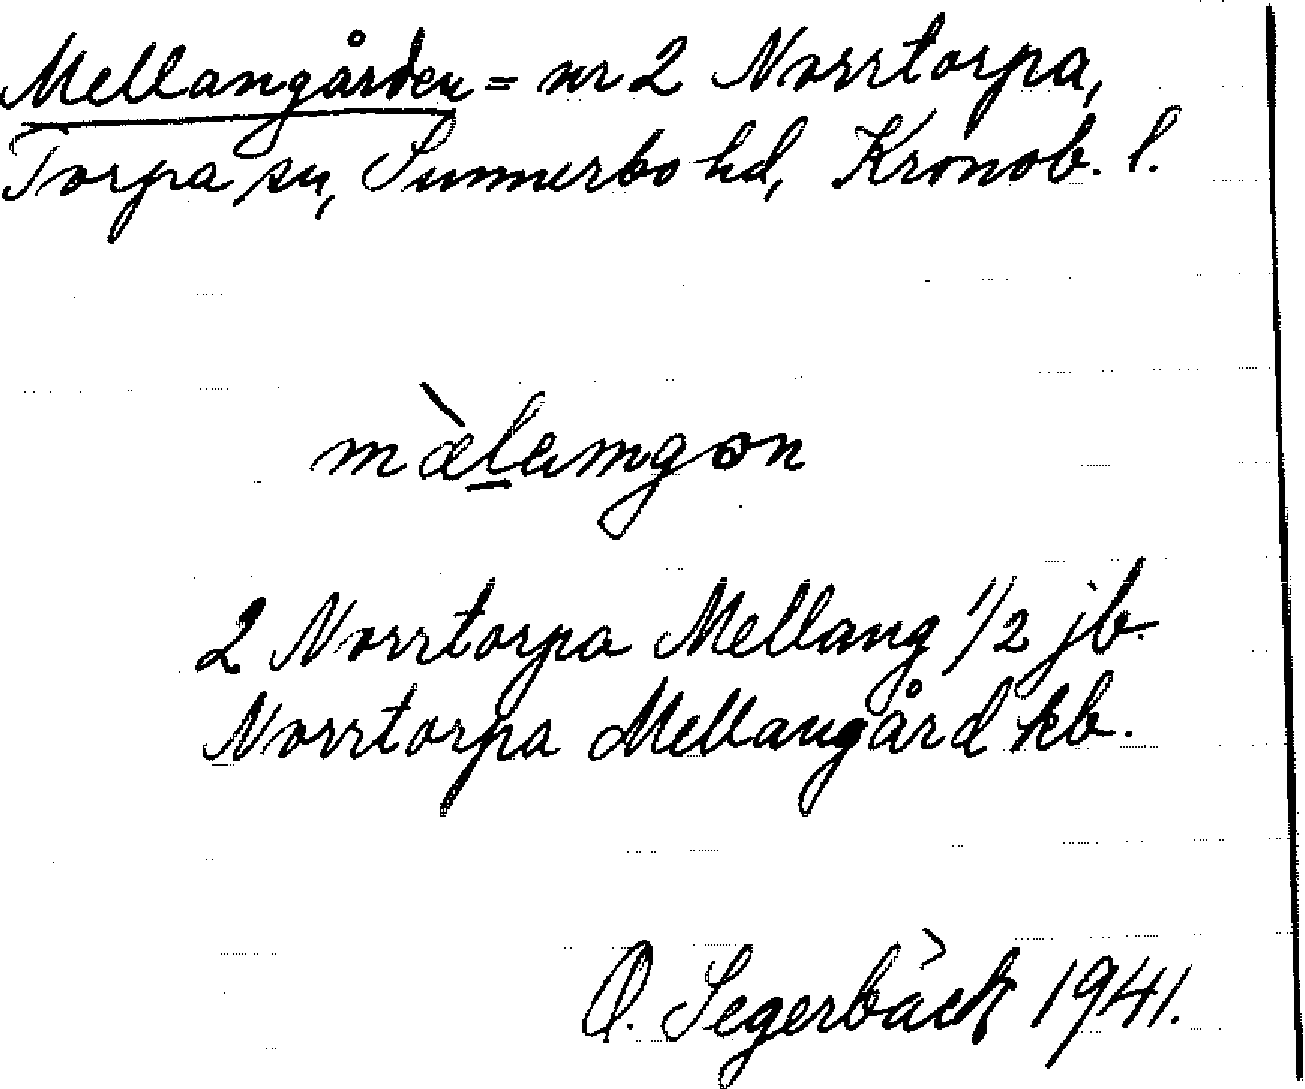 Mellangården = nr 2 Norrtorpa,
Torpa sn, Sunnerbo hd, Kronob. l.
mæ̀l̠amgɔn
2 Norrtorpa Mellang 1/2 jb.
Norrtorpa Mellangård kb.
O. Segerbäck 1941.